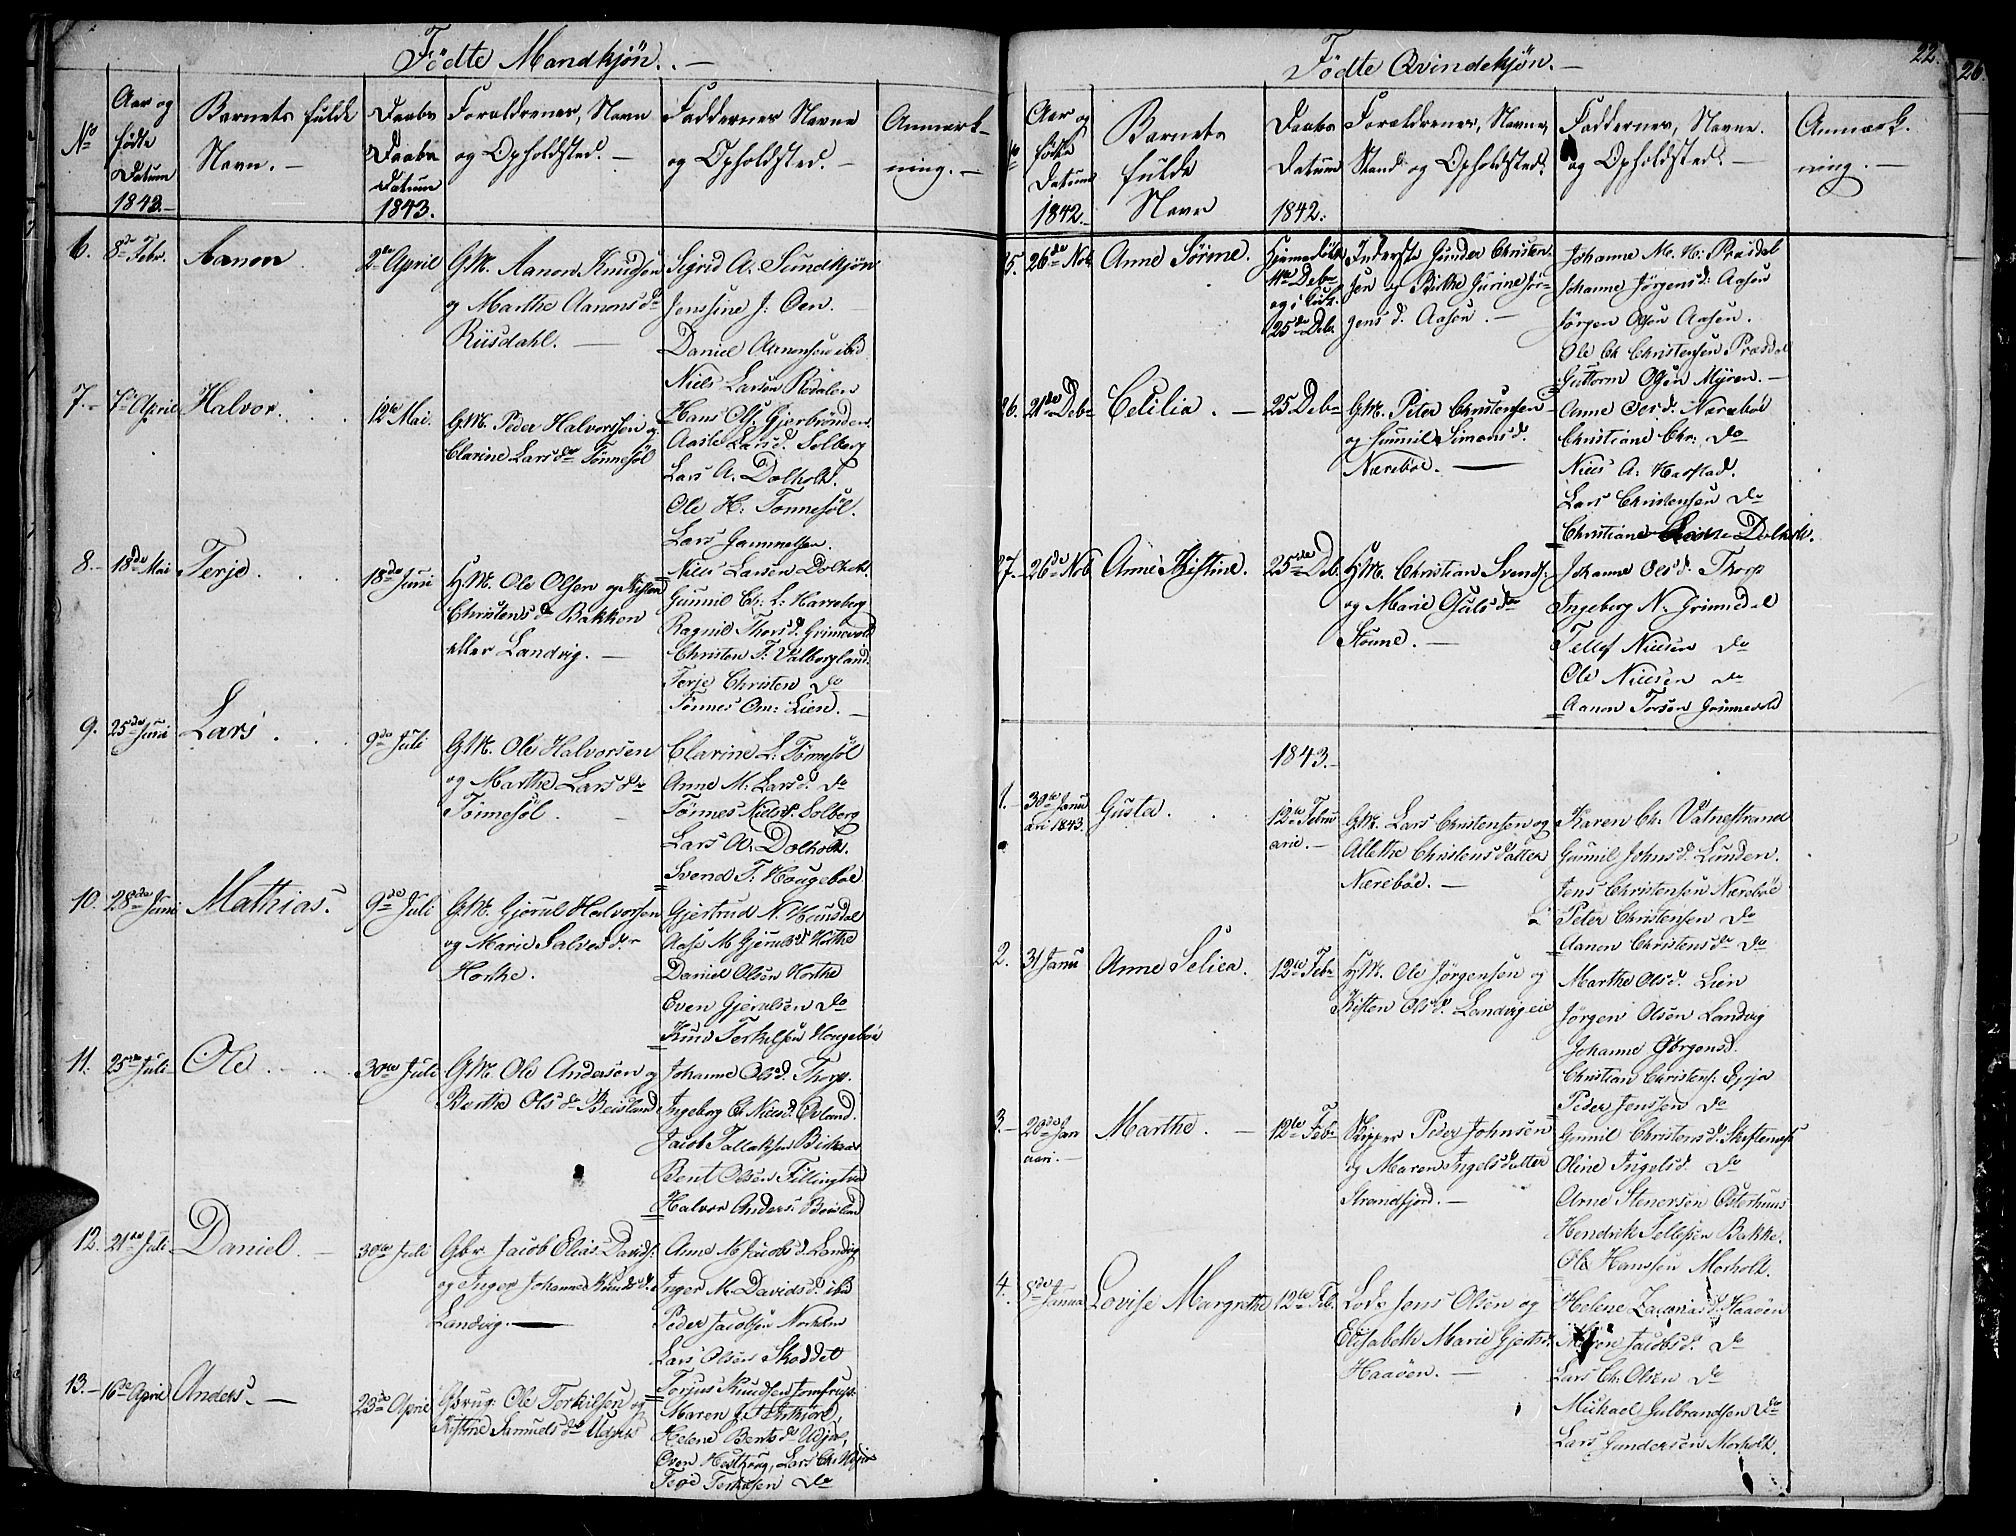 Födte Mandkjön. —
No
Aar og
fødte
Datum
1843.
Barnets fulde
Navn. —
Daabs
Datum
1843.
Foraldrenes, Navn
og Opholdsted. —
Faddernes Navne
og Opholdsted. —
Anmærk-
ning. —
6. 8de Febr. Aanon 2de April
G.M. Aanon Knudsen
og Marthe Aanonsdr
Riisdahl. —
Sigrid A. Sundkjøn
Jenssine J. Oen. —
Daniel Aanonsen ibid
Niels Larsen
7. 7de April Halvor. 12te Mai.
G.M. Peder Halvorssen og
Clarine Larsdr Tönnesöl
Hans Ols. Gjerbrønden
Aaste Larsd. Solberg
Lars A. Dælholt.
Ole H. Tonnesöl.
Lars Gammelsen.
8. 18de Mai Terje. 18de Juni
H.M. Ole Olsen og Kisten
Christensdr Bakken
eller Landvig. —
Niels Larsen Dolholt.
Gunnil Ch. L. Harreberg
Ragnild Thorsd. Grimevold
Christen T. Valborgland.
Terje Christen do
Tönnes Om: Lien. —
9. 25de Juni Lars. 9de Juli
G.M. Ole Halvorsen
og Marthe Larsdr
Tönnesöl. —
Clarine L: Tönnesöl
Anne M: Larsd. do
Tönnes Niels. Solberg
Lars A. Dælholt.
Svend T. Hougeboe
10. 28de Juni Mathias. 9de Juli
G.M. Gjeruld Halvorsen
og Marie Salvesdr
Horthe.
Gjertrud N. Hunsdal
Aase M Gjeruldsd Horthe
Daniel Olsen Horthe
Even Gjerulsen do
Knud Terkelsen Hougeboe
11. 25de Juli Ole. 30te Juli
G.M. Ole Andersen og
Berthe Olsdr Beisland
Johanne Olsd. Thorp.
Ingeborg Ch. Nielsd. Øvland.
Jacob Tallaksen Birkenes
Bent Olsen Fillingtved
Halvor Anders. Beisland
12. 21de Juli Daniel. — 30te Juli
Gbr. Jacob Elias Davids.
og Inger Johanne Knudsd.
Landvig. —
Anne M Jacobsd Landvig
Inger M. Davidsd. ibid
Peder Jacobsen Norholm
Lars Olsen Skoddet
Torjus Knudsen Jomfru
13. — 16de April Anders. — 23de April
Gbrug: Ole Terkilsen og
Kistine Samuelsdr Udjus
Maren
Helene Bentsdr Udjus,
Even Hesthaug, Lars Ch. Udjus
Terje Terkilsen do
Födte Qvindekjön. —
22.
26
No
Aar og
fødte
Datum
1842.
Barnets
fulde
Navn
Daabs
Datum
1842.
Foraldrenes, Navne,
Stand og Opholdsted.
Faddernes, Navne.
og Opholdsted. —
Anmærk.
ning. —
25. 26de Nob Anne Sørine.
Hjemmedöbt
4de Debr
og i Kirk.
25de Deb.
Inderste Gunder Christen-
sen og Birthe Gurine Jör-
gensd. Aasen. —
Johanne M. N: Præsdal
Johanne Jörgensd. Aasen
Jörgen Olsen Aasen.
Ole Ch Christensen Præsdal
Guttorm Olsen Myren. —
26. 21de Debr Cecilia. — 25 Debr
G.M. Peter Christensen
og Gunnil Simonsd.
Næreböe. —
Anne Olesd. Nærebøe
Christiane Chr: do
Niels A. Harstad.
Lars Christensen do
Christiane Dælholt.
27. 26de Nob Anne Kistine. 25de Deb.
H.M. Christian Svends.
og Marie Osulsdr
Stömne. —
Johanne Olsd. Thorp
Ingeborg N. Grimedal
Tellef Nielsen do
Ole Nielsen do
Aanon Torsen Grimevold
1843. —
1. — 30te Janu
ari 1843. Gusta. 12te Febru
arie. —
G.M. Lars Christensen og
Allethe Christensdatter
Nærebøe. —
Karen Ch. Vatnestrand
Gunnil Johnsd. Lunden.
Jens Christensen Nærebøe
Peter Christensen do
Aanon Christensdr do
2. 31 Janu Anne Selica. 12te Febr
H.M. Ole Jørgensen og
Kisten Olsd. Landvigeie
Marthe Olsd. Lien
Jørgen Olsen Landvig
Johanne Gbrgensd.
Christian Christens: Egeja
Peder Jenssen do
3. — 28de Jan
uari. — Marthe. — 12te Febr
Skipper Peder Johnsen
og Maren Ingelsdatter
Strandfjord. —
Gunnil Christensd. Skiftenes
Oline Ingelsd. do
Arne Stenersen Østerhuus
Hendrik Tellefsen Bakke.
Ole Hanssen Morholt.
4. 5de Janua Lovise Margrethe 12te Feb.
Lods Jens Olsen og
Elisabeth Marie Gjertsdr
Haaöen. —
Helene Zacariasd. Haaöen
Maren Jacobsd. do
Lars Ch. Olsen do
Michael Gulbrandsen do
Lars Gundersen Morholt.